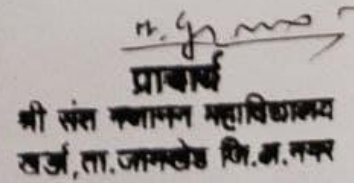 प्राचार्य
श्री संत गजानन महाविद्यालय
खर्डा, ता. जामखेड जि.अ.नगर